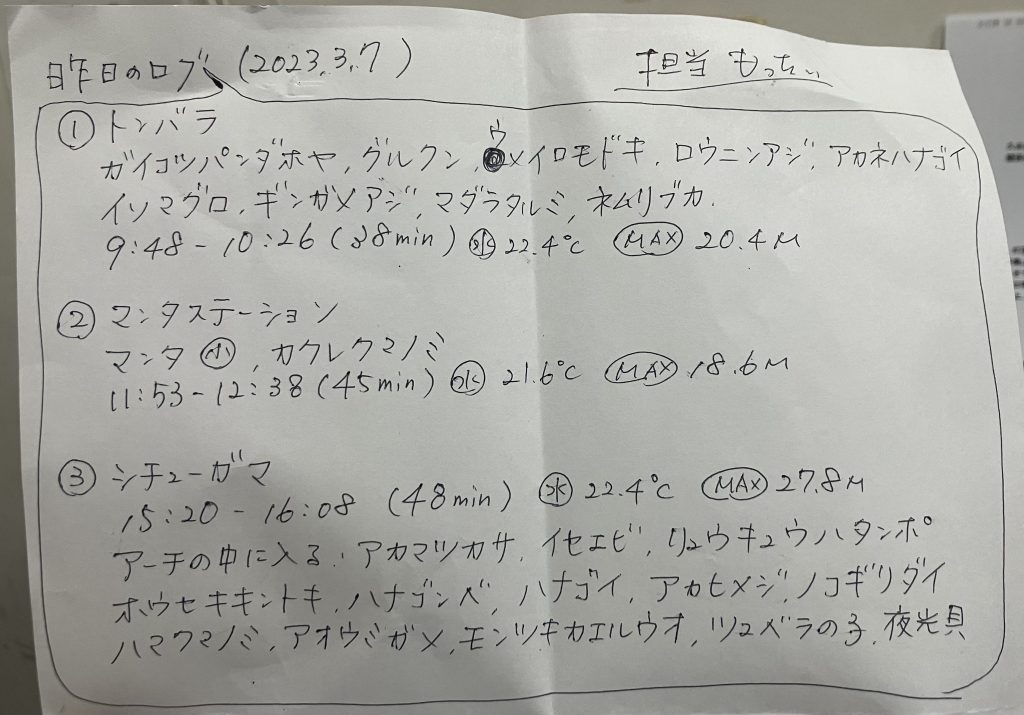 昨日のログ (2023.3.7) 担当 もってぃ
① トンバラ
ガイコツパンダホヤ, グルクン, ウメイロモドキ, ロウニンアジ, アカネハナゴイ
イソマグロ, ギンガメアジ, マダラタルミ, ネムリブカ.
9:48-10:26 (38min) 水 22.4℃ MAX 20.4M
② マンタステーション
マンタ 小, カクレクマノミ
11:53-12:38 (45min) 水 21.6℃ MAX 18.6M
③ シチューガマ
15:20-16:08 (48min) 水 22.4℃ MAX 27.8M
アーチの中に入る. アカマツカサ, イセエビ, リュウキュウハタンポ
ホウセキキントキ, ハナゴンベ, ハナゴイ, アカヒメジ, ノコギリダイ
ハマクマノミ, アオウミガメ, モンツキカエルウオ, ツユベラの子, 夜光貝